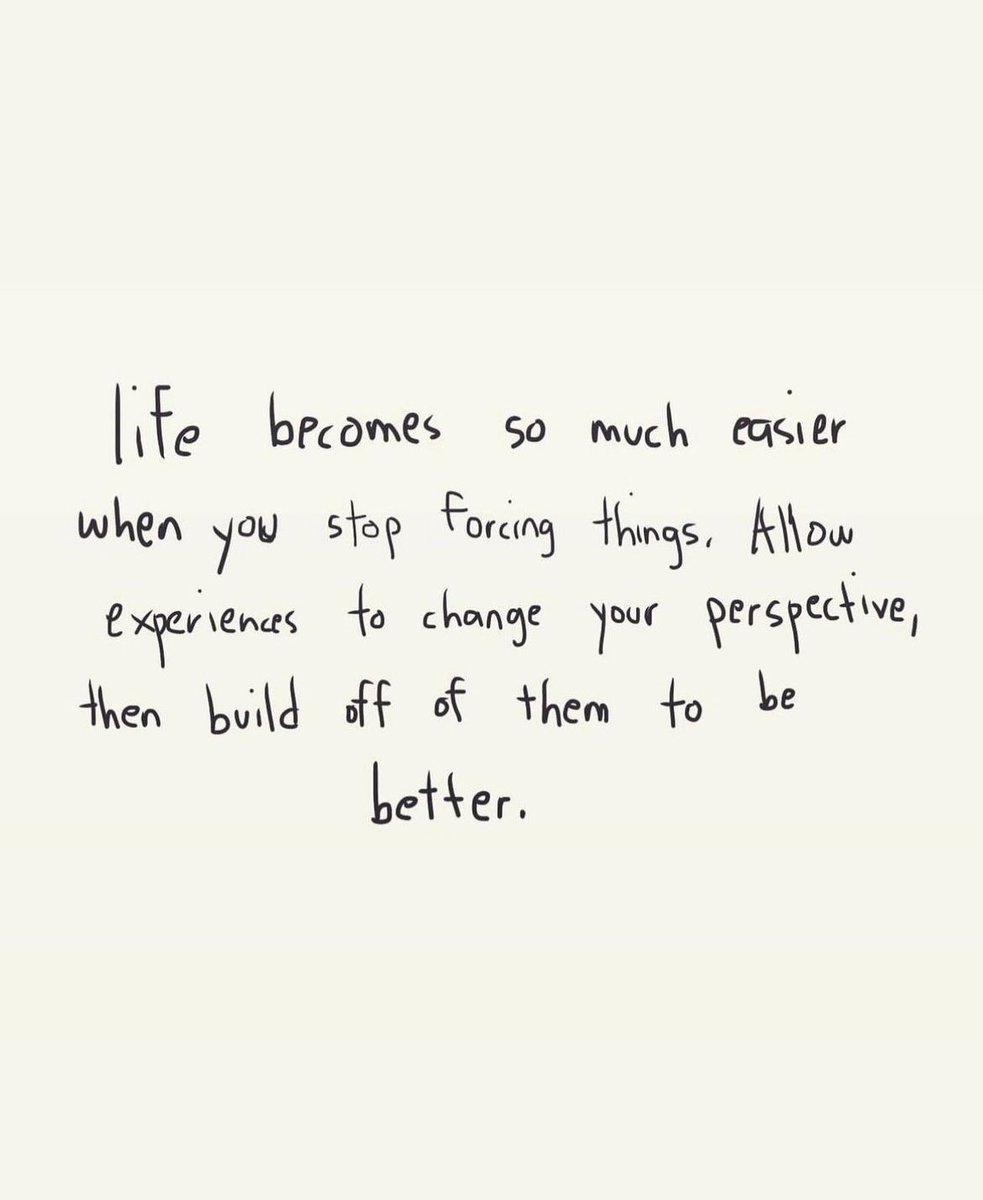 life becomes so much easier
when you stop forcing things. Allow
experiences to change your perspective,
then build off of them to be
better.